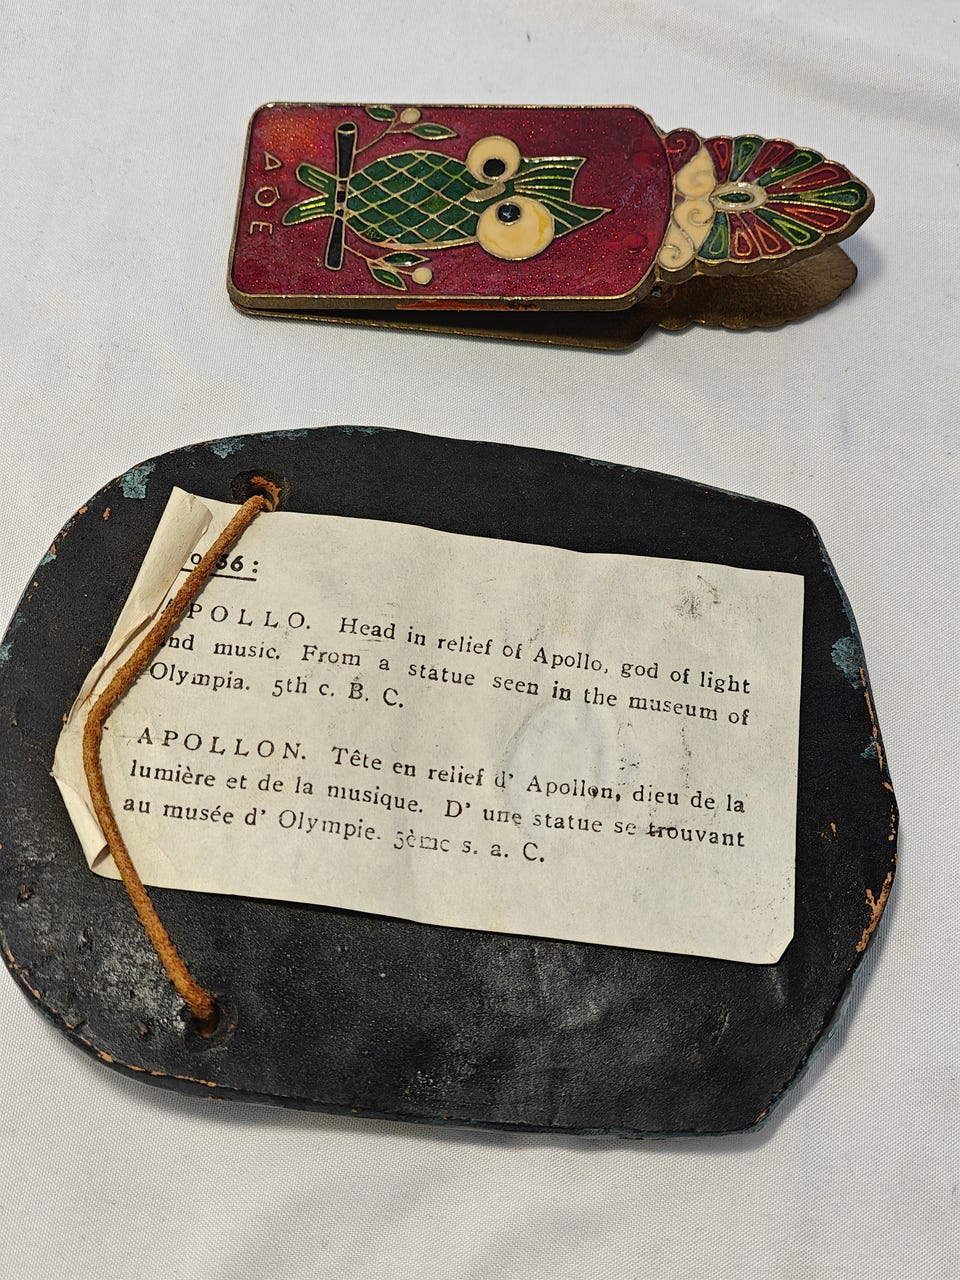 ΑΘΕ
o 66:
APOLLO. Head in relief of Apollo, god of light
and music. From a statue seen in the museum of
Olympia. 5th c. B. C.
APOLLON. Tête en relief d' Apollon, dieu de la
lumière et de la musique. D' une statue se trouvant
au musée d' Olympie. 5ème s. a. C.